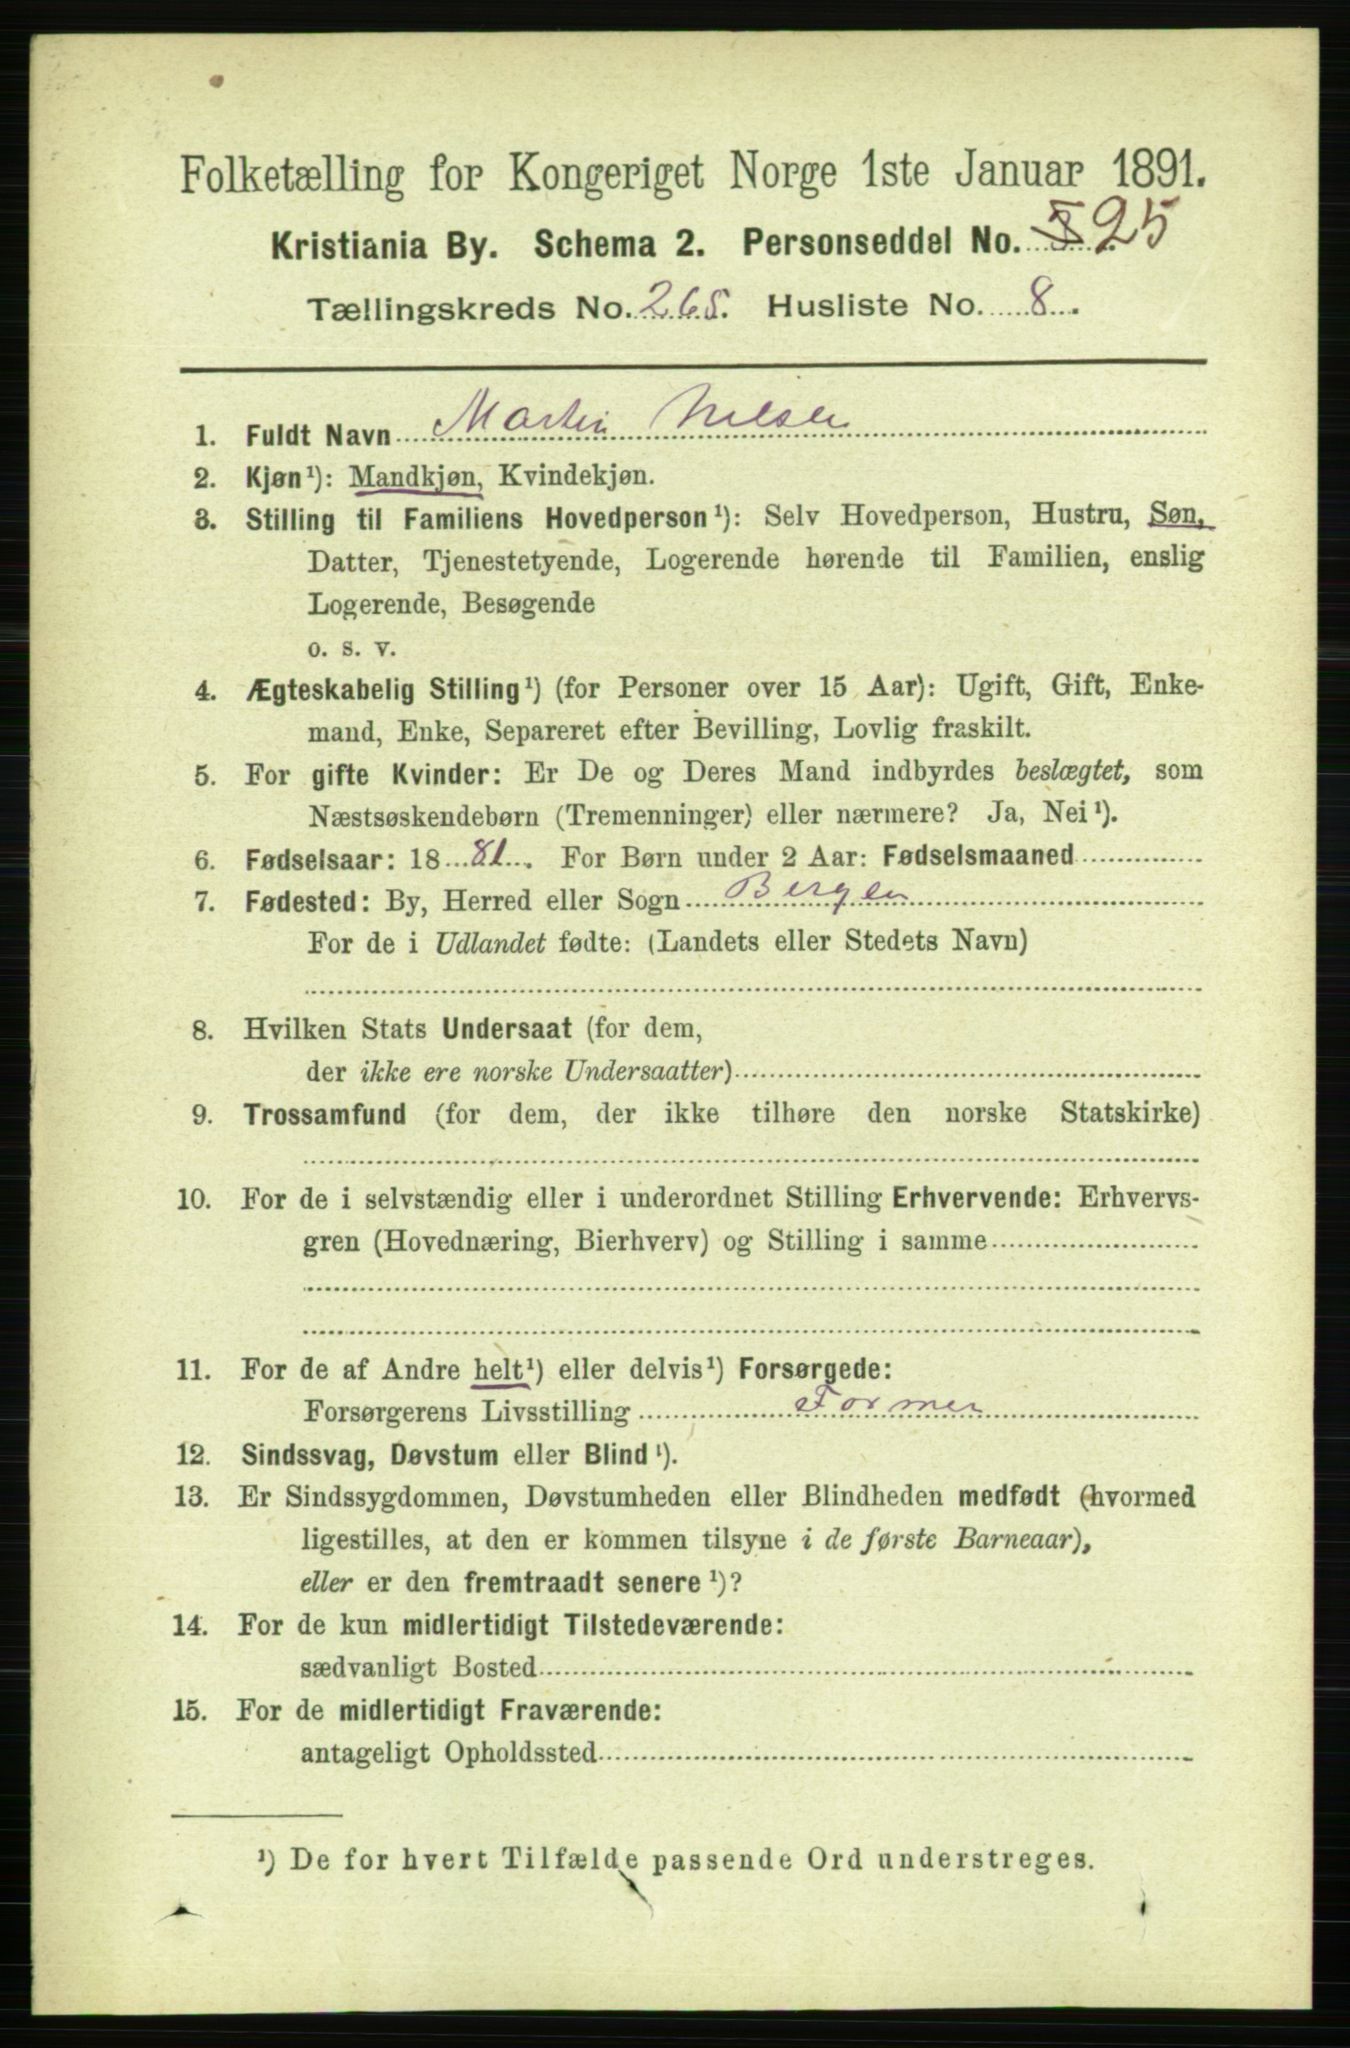 Folketælling for Kongeriget Norge 1ste Januar 1891.
Kristiania By. Schema 2. Personseddel No. 25
Tællingskreds No. 265. Husliste No. 8.
1. Fuldt Navn Martin Nilsen
2. Kjøn¹): Mandkjøn, Kvindekjøn.
3. Stilling til Familiens Hovedperson¹): Selv Hovedperson, Hustru, Søn,
Datter, Tjenestetyende, Logerende hørende til Familien, enslig
Logerende, Besøgende
o. s. v.
4. Ægteskabelig Stilling¹) (for Personer over 15 Aar): Ugift, Gift, Enke-
mand, Enke, Separeret efter Bevilling, Lovlig fraskilt.
5. For gifte Kvinder: Er De og Deres Mand indbyrdes beslægtet, som
Næstsøskendebørn (Tremenninger) eller nærmere? Ja, Nei¹).
6. Fødselsaar: 1881. For Børn under 2 Aar: Fødselsmaaned
7. Fødested: By, Herred eller Sogn Bergen
For de i Udlandet fødte: (Landets eller Stedets Navn)
8. Hvilken Stats Undersaat (for dem,
der ikke ere norske Undersaatter)
9. Trossamfund (for dem, der ikke tilhøre den norske Statskirke)
10. For de i selvstændig eller i underordnet Stilling Erhvervende: Erhvervs-
gren (Hovednæring, Bierhverv) og Stilling i samme
11. For de af Andre helt¹) eller delvis¹) Forsørgede:
Forsørgerens Livsstilling Former
12. Sindssvag, Døvstum eller Blind¹).
13. Er Sindssygdommen, Døvstumheden eller Blindheden medfødt (hvormed
ligestilles, at den er kommen tilsyne i de første Barneaar),
eller er den fremtraadt senere¹)?
14. For de kun midlertidigt Tilstedeværende:
sædvanligt Bosted
15. For de midlertidigt Fraværende:
antageligt Opholdssted
¹) De for hvert Tilfælde passende Ord understreges.